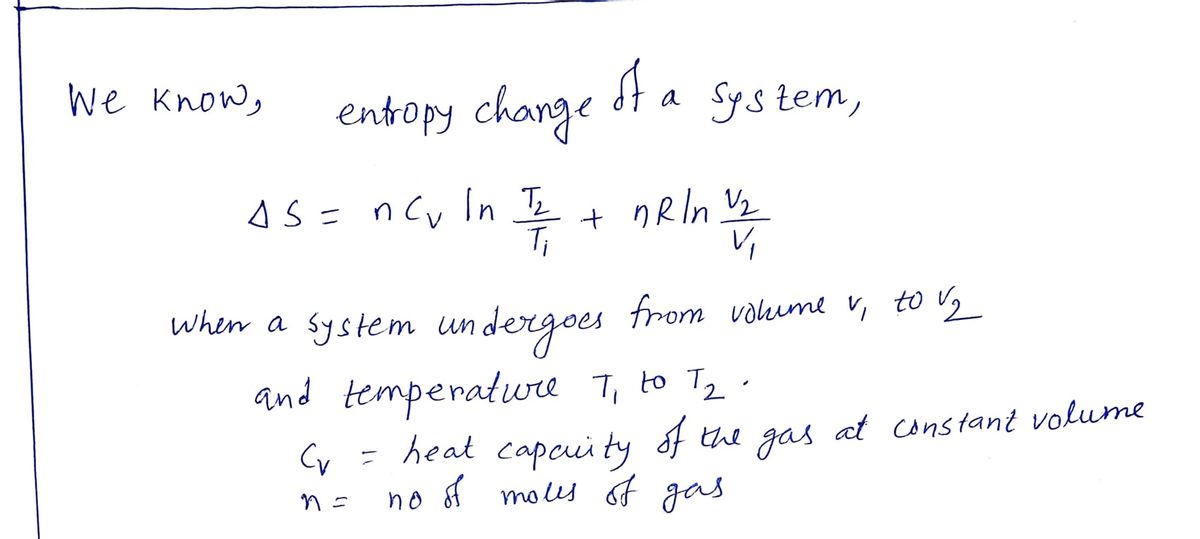 We know, entropy change of a system,
ΔS = nCv ln T2/T1 + nR ln V2/V1
when a system undergoes from volume V1 to V2
and temperature T1 to T2.
Cv = heat capacity of the gas at constant volume
n = no of moles of gas